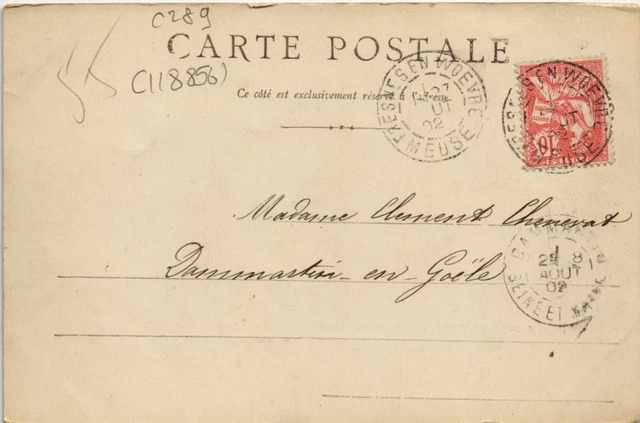 C289
55
CARTE POSTALE
C(118856)
Ce côté est exclusivement réservé à l'adresse
FRESNES EN WOEVRE
27
AOUT
02
MEUSE
FRESNES EN WOEVRE
MEUSE
10
Madame Clement Chenevat
Dammartin-en-Goële
28
AOUT
02
SEINE ET MARNE